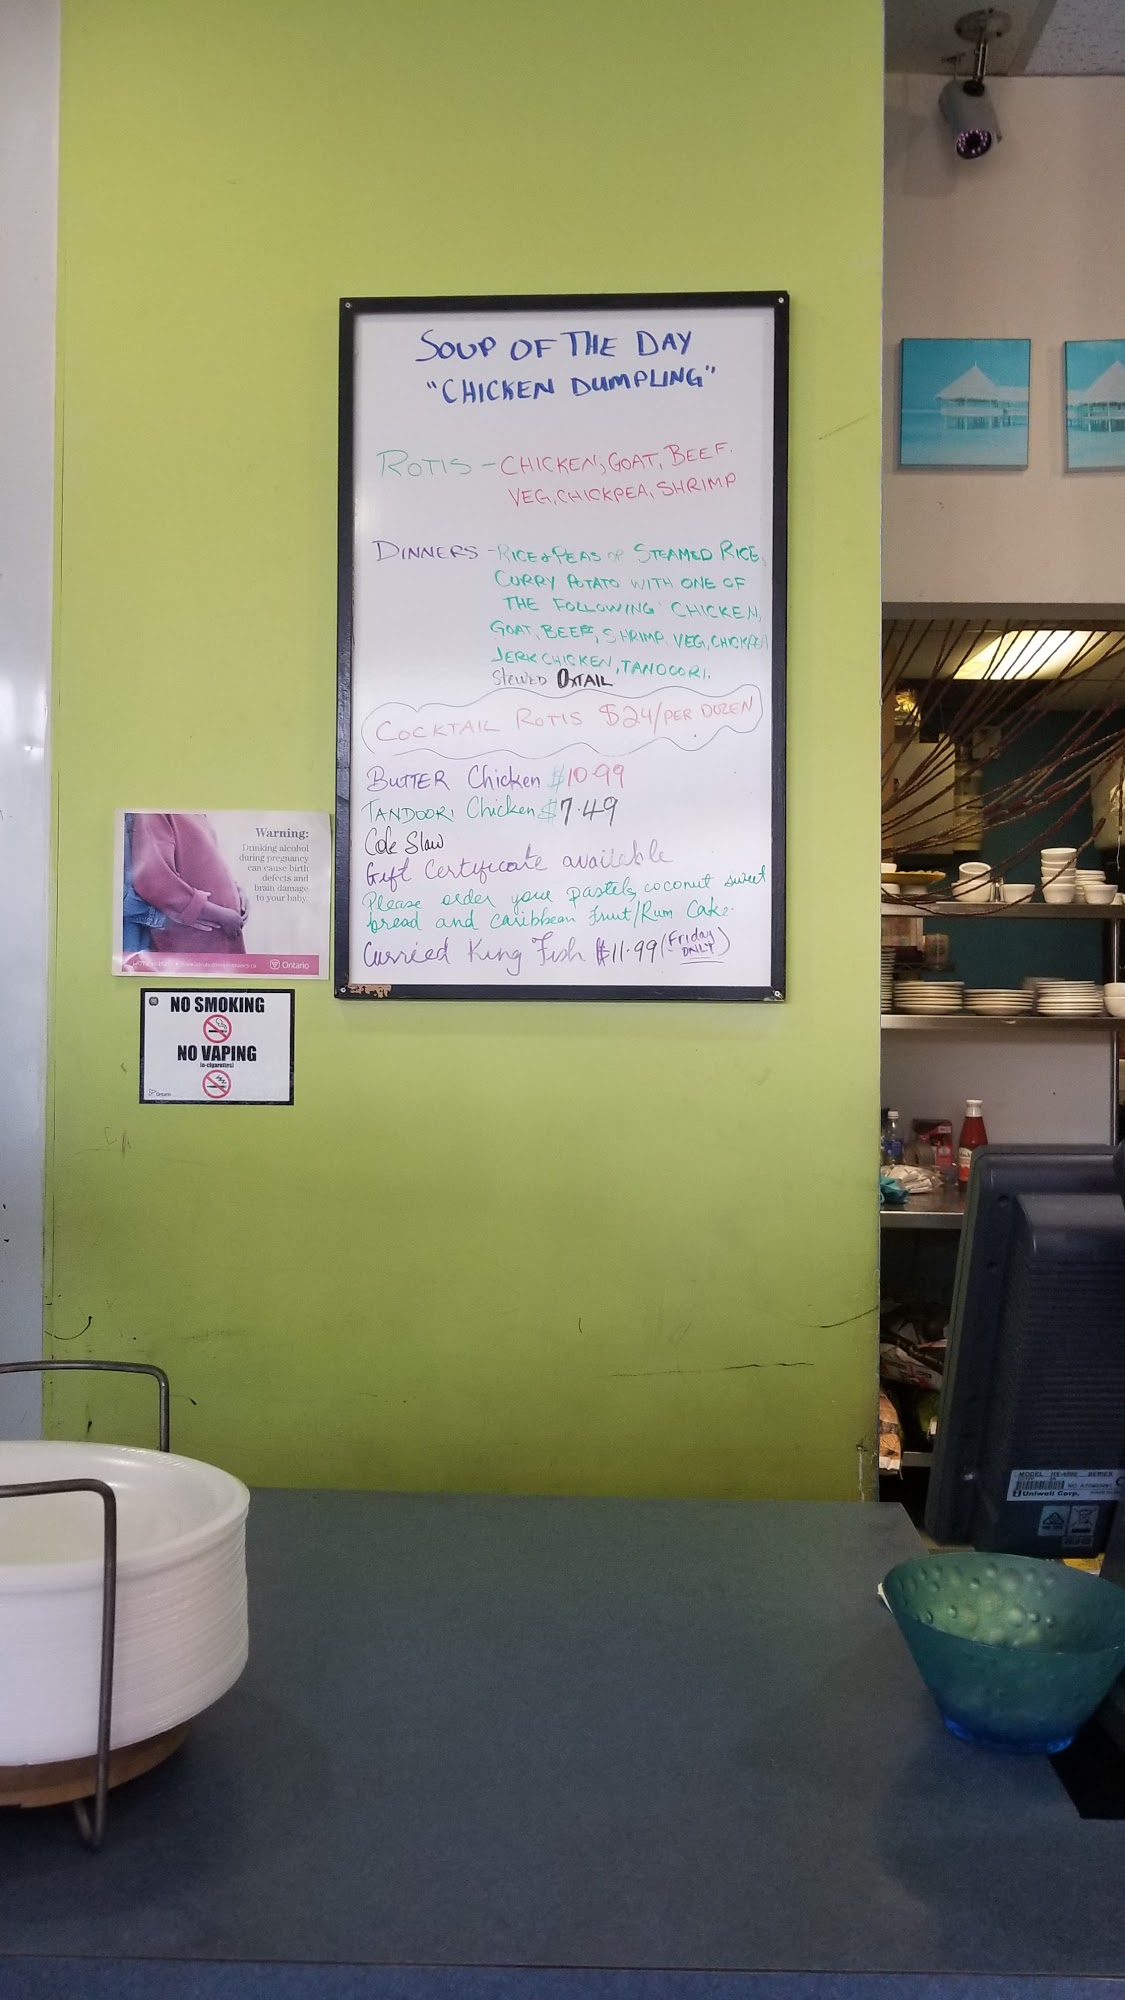 SOUP OF THE DAY
"CHICKEN DUMPLING"
ROTIS - CHICKEN, GOAT, BEEF.
VEG, CHICKPEA, SHRIMP
DINNERS - RICE & PEAS OR STEAMED RICE,
CURRY POTATO WITH ONE OF
THE FOLLOWING CHICKEN,
GOAT, BEEF, SHRIMP. VEG, CHICKPEA
JERK CHICKEN, TANDOORI.
STEWED OXTAIL
COCKTAIL ROTIS $24/PER DOZEN
BUTTER Chicken $10.99
TANDOORI Chicken $7.49
Cole Slaw
Gift Certificate available
Please order your pastels, coconut sweet
bread and caribbean fruit/Rum Cake.
Curried King Fish $11.99 (Friday ONLY)
Warning:
Drinking alcohol
during pregnancy
can cause birth
defects and
brain damage
to your baby.
Ontario
NO SMOKING
NO VAPING
(e-cigarettes)
Ontario
MODEL SERIES
Uniwell Corp.